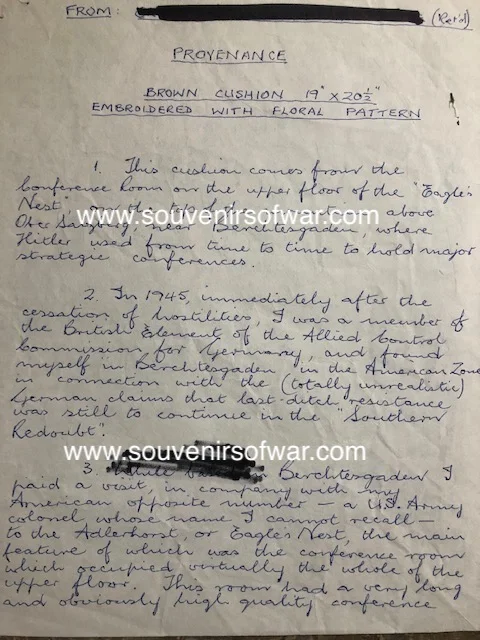 FROM: (Ret'd)
PROVENANCE
BROWN CUSHION 19" X 20½"
EMBROIDERED WITH FLORAL PATTERN
1. This cushion comes from the
Conference Room on the upper floor of the "Eagle's
Nest", on the top of the above
www.souvenirsofwar.com
Ober Salzburg, near Berchtesgaden, where
Hitler used from time to time to hold major
strategic conferences.
2. In 1945, immediately after the
cessation of hostilities, I was a member of
the British Element of the Allied Control
Commission for Germany, and found
myself in Berchtesgaden in the American Zone
in connection with the (totally unrealistic)
German claims that last-ditch resistance
was still to continue in the "Southern
Redoubt".
www.souvenirsofwar.com
3. Berchtesgaden I
paid a visit, in company with my
American opposite number – a U.S. Army
colonel whose name I cannot recall –
to the Adlerhorst, or Eagle's Nest, the main
feature of which was the conference room
which occupied virtually the whole of the
upper floor. This room had a very long
and obviously high quality conference